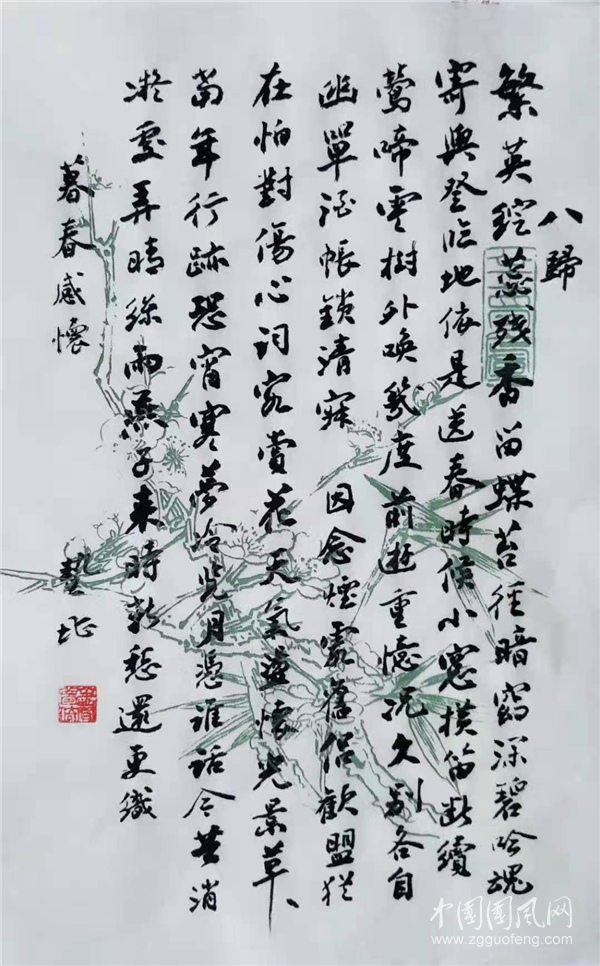 八歸
繁英綻蕊殘香留蝶苔徑暗深碧吟魂
寄興登臨地依是送春時候小窗橫笛斷續
鶯啼雲樹外喚幾度前遊重憶況久別各自
幽單帳鎖清寐 因念煙霞舊侶歡盟猶
在怕對傷心詞客賞花天氣遣懷光景草、
當年行跡恐宵寒夢冷月憑誰話今昔消
凝處弄晴絲雨燕子來時新愁還更織
暮春感懷
中国國风网
www.zgguofeng.com